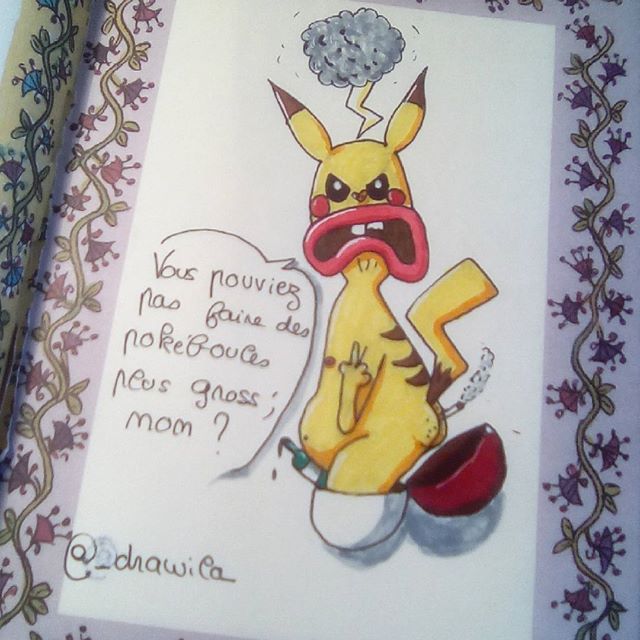 Vous pouviez
pas faire des
pokeboules
plus gross;
mom ?
@_drawila